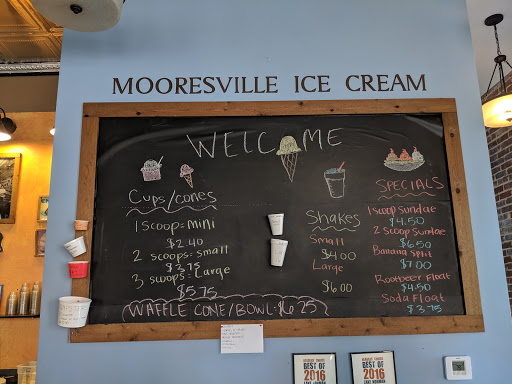 MOORESVILLE ICE CREAM
WELCOME
CUPS/CONES
1 SCOOP = MINI
$2.40
2 SCOOPS = SMALL
$3.75
3 SCOOPS = LARGE
$5.75
WAFFLE CONE/BOWL = $6.25
SHAKES
SMALL
$4.00
LARGE
$6.00
SPECIALS
1 SCOOP SUNDAE
$4.50
2 SCOOP SUNDAE
$6.50
BANANA SPLIT
$7.00
ROOTBEER FLOAT
$4.50
SODA FLOAT
$3.75
BEST OF
2016
LAKE NORMAN
BEST OF
2016
LAKE NORMAN